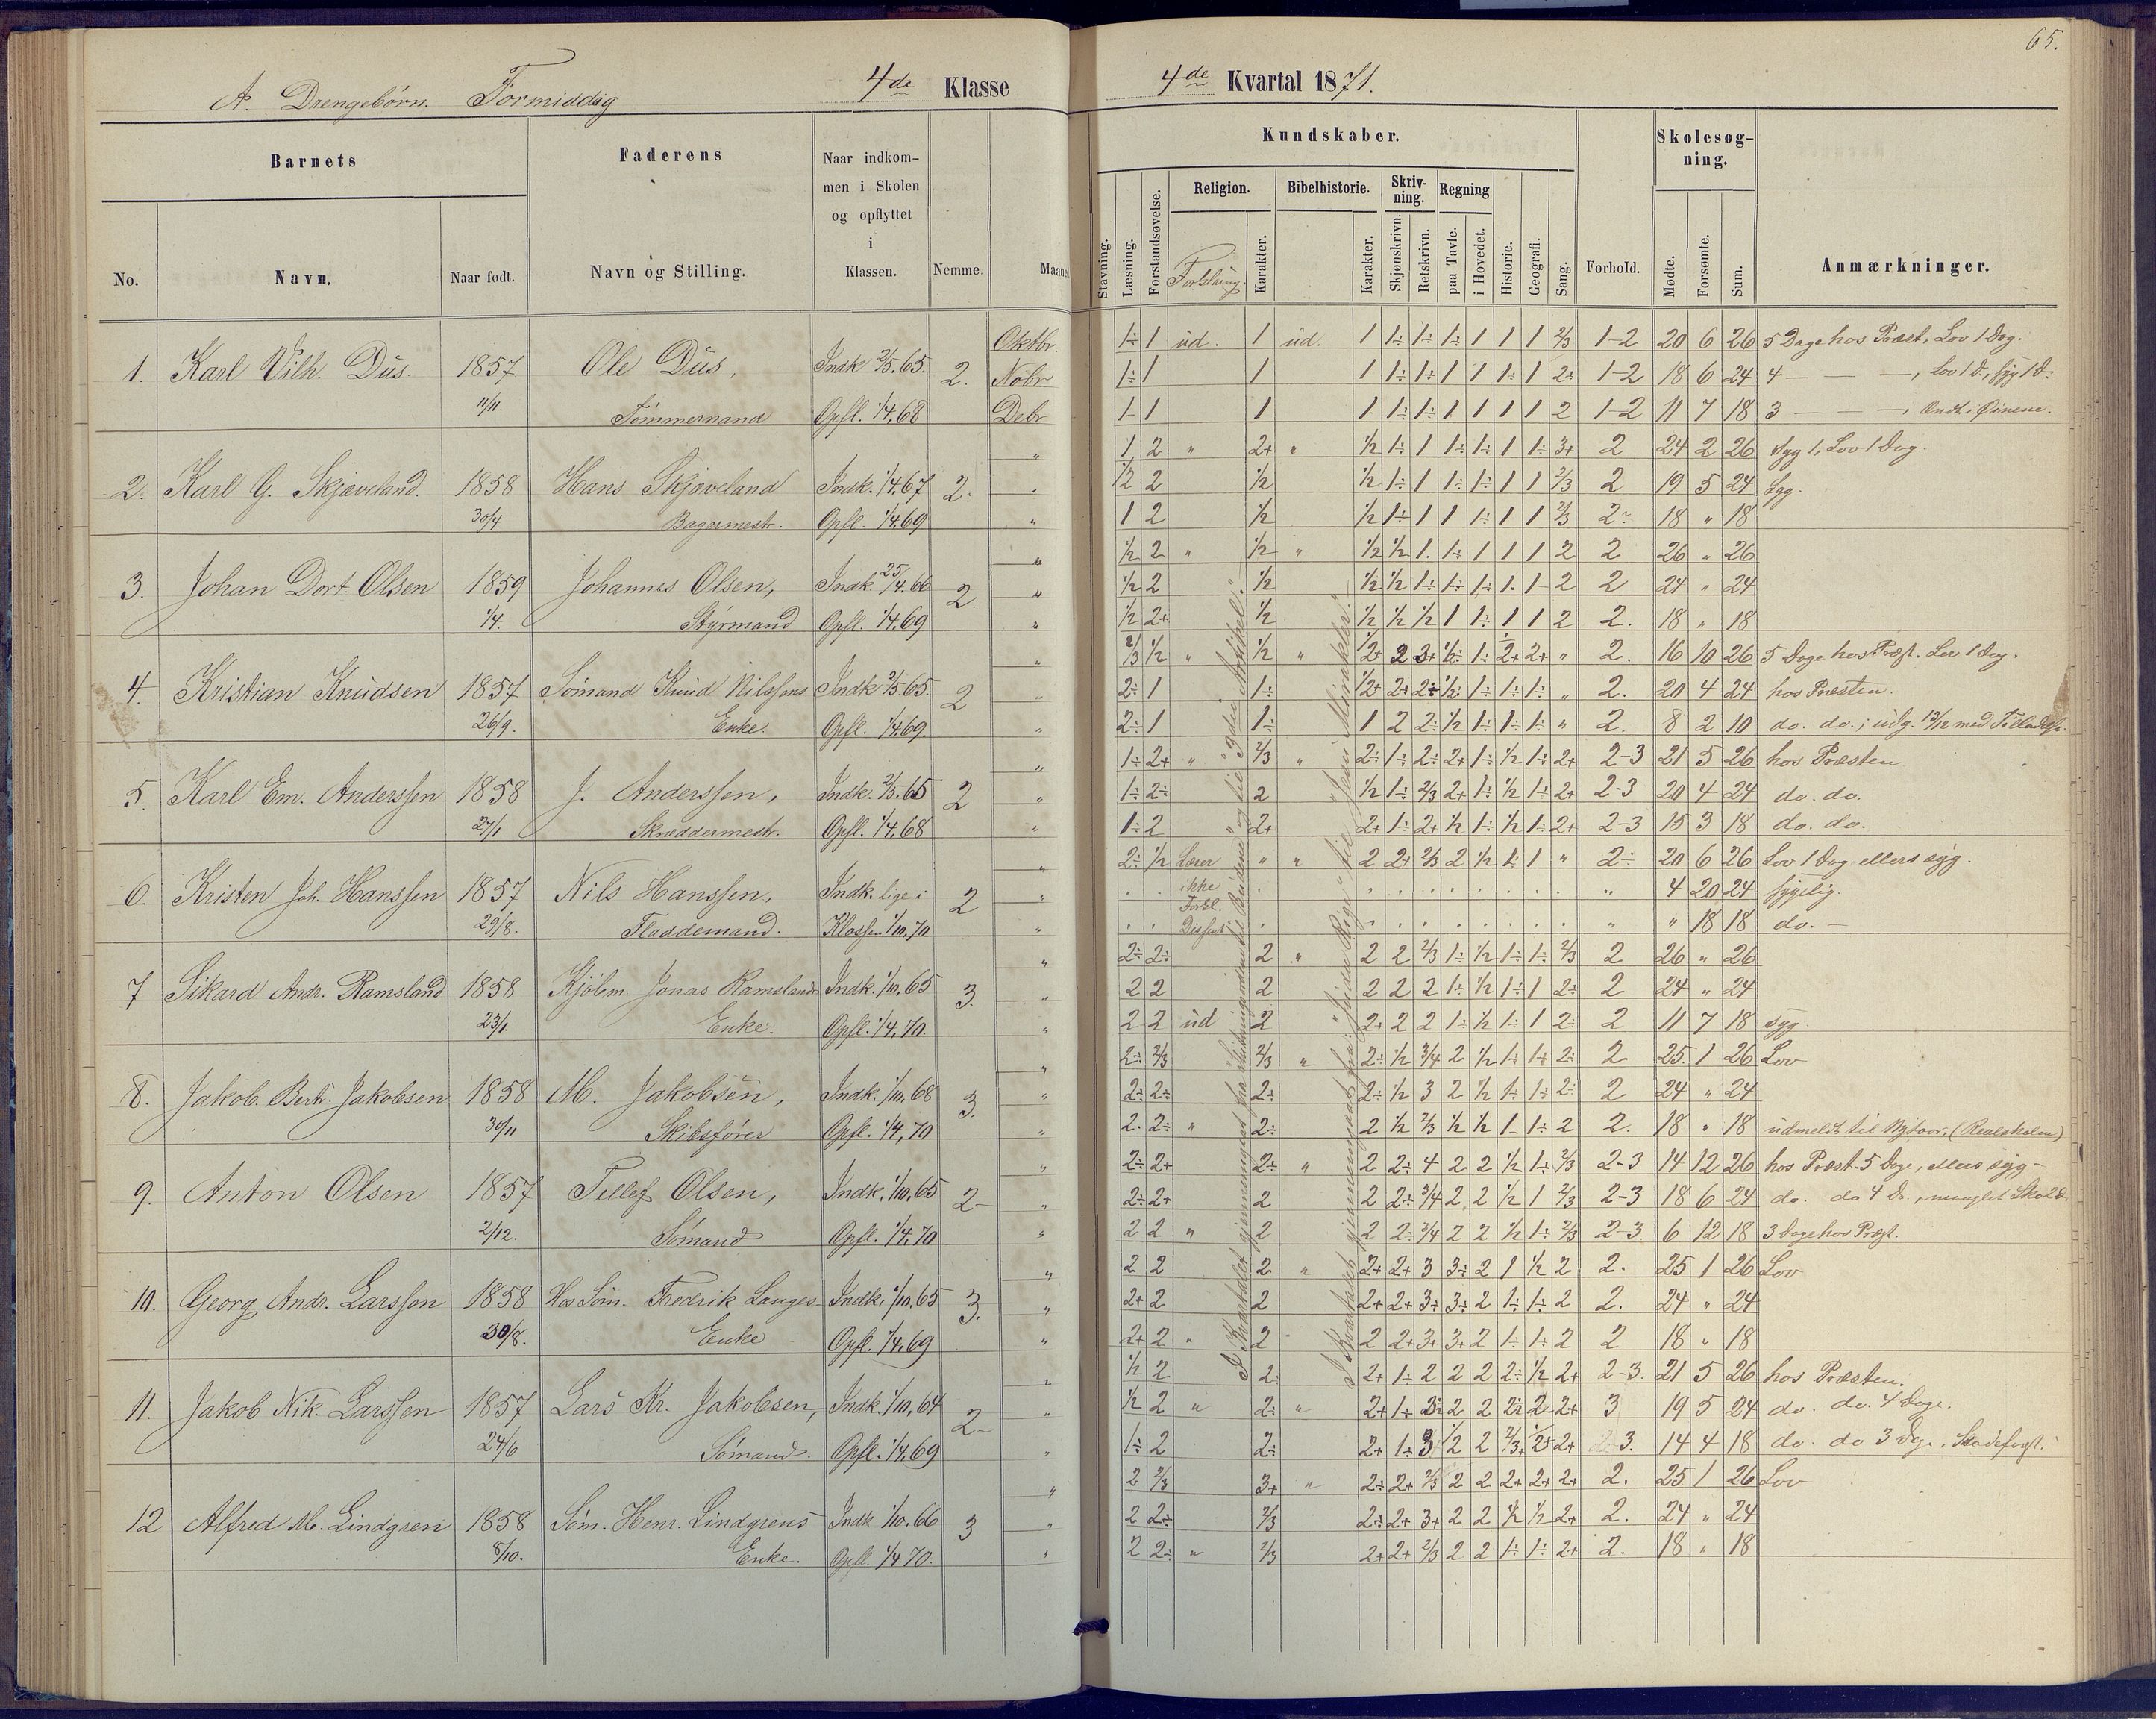 65.
A. Drengebørn. Formiddag 4de Klasse
4de Kvartal 1871.
Barnets
Faderens
Naar indkommen i Skolen og opflyttet i Klassen.
No. Navn. Naar født. Navn og Stilling. Nemme. Maaned
Kundskaber.
Skolesøgning.
Religion. Bibelhistorie. Skrivning. Regning
Stavning. Læsning. Forstandsøvelse. Forklaring. Karakter. Karakter. Skjønskrivn. Retskrivn. paa Tavle. i Hovedet. Historie. Geografi. Sang. Forhold. Mødte. Forsømte. Sum. Anmærkninger.
1. Karl Vilh. Dus. 1857 Ole Dus, Indk 2/5.65. 2. Oktbr. 1÷ 1 ud. 1 ud. 1 1÷ 1÷ 1÷ 1 1 1 2/3 1-2 20 6 26 5 Dage hos Præst, Lov 1 Dag.
Nobr 1÷ 1 1 1 1÷ 1÷ 1 1 1÷ 1 2÷ 1-2 18 6 24 4 — — —, Lov 1 D., syg 1 D.
11/11. Tømmermand Opfl. 1/4.68 Debr 1- 1 1 1 1÷ 1÷ 1 1 1 1 2 1-2 11 7 18 3 — — —, Ondt i Øinene.
2. Karl G. Skjæveland. 1858 Hans Skjæveland Indk. 1/4.67 2. " 1 2 " 2+ " 1/2 1÷ 1 1÷ 1÷ 1 1÷ 3+ 2 24 2 26 Syg 1, Lov 1 Dag.
" 1/2 2 1/2 1/2 1÷ 1 1÷ 1÷ 1 1 2/3 2 19 5 24 Syg.
30/4. Bagermestr. Opfl. 1/4.69 " 1 2 1/2 1/2 1÷ 1 1 1÷ 1 1 2/3 2÷ 18 " 18
3. Johan Dort. Olsen 1859 Johannes Olsen, Indk. 25/4.66 2. " 1/2 2 " 1/2 " 1/2 1/2 1. 1÷ 1 1 1 2 2 26 " 26
" 1/2 2 1/2 1/2 1/2 1÷ 1÷ 1÷ 1. 1- 2 2 24 " 24
1/4. Styrmand Opfl. 1/4.69 " 1/2 2+ 1/2 1/2 1/2 1/2 1 1÷ 1 1 2 2. 18 " 18
4. Kristian Knudsen 1857 Sømand Knud Nilssens Indk 2/5.65. 2 " 2/3 1/2 " 1/2 " 1/2+ 2 3+ 1/2÷ 1÷ 2+ 2+ " 2. 16 10 26 5 Dage hos Præst. Lov 1 Dag.
" 2÷ 1 1÷ 1/2+ 2+ 2÷ 1/2÷ 1÷ 1÷ 1÷ " 2. 20 4 24 hos Præsten.
26/9. Enke. Opfl. 1/4.69. " 2÷ 1 1÷ 1 2 2÷ 1/2 1÷ 1÷ 1÷ " 2. 8 2 10 do. do.; udg. 13/12 med Tilladelse.
5. Karl Em. Anderssen 1858 J. Anderssen, Indk. 2/5.65 2 " 1÷ 2+ " 2/3 " 2÷ 1÷ 2÷ 2+ 1÷ 1/2 1÷ 2+ 2-3 21 5 26 hos Præsten.
" 1÷ 2÷ 2 1/2 1÷ 2/3 2+ 1÷ 1/2 1÷ 2+ 2-3 20 4 24 do. do.
27/1 Skræddermestr. Opfl. 1/4.68 " 1÷ 2 2+ 2+ 1÷ 2+ 1/2 1÷ 1/2 1÷ 2+ 2-3 15 3 18 do. do.
6. Kristen Joh. Hanssen 1857 Nils Hanssen, Indk. lige i 2 " 2÷ 1/2 Lærer " " 2 2+ 2/3 2 1/2 1÷ 1 " 2÷ 20 6 26 Lov 1 Dag ellers syg.
" ikke Forkl. " 4 20 24 sygelig.
29/8. Fladdemand. Klassen 1/10.70 " Dissent. " " 18 18 do. —
7 Sikard Andr. Ramsland 1858 Kjøbm. Jonas Ramslands Indk. 1/10.65 3. " 2÷ 2÷ 2 " 2 2 2/3 1÷ 1/2 1÷ 1÷ 2/3 2 26 " 26
" 2 2 2 2 2 2 1÷ 1/2 1÷ 1 2÷ 2 24 " 24
23/1. Enke. Opfl. 1/4.70. " 2 2 ud 2 2+ 2 2 1÷ 1/2 1÷ 1 2÷ 2 11 7 18 syg.
8. Jakob Bert. Jakobsen 1858 M. Jakobsen, Indk. 1/10.68 3. " 2÷ 2/3 2/3 " 2÷ 1/2 3/4 2 1/2 1÷ 1÷ 2÷ 2 25. 1 26 Lov
" 2÷ 2÷ 2÷ 2÷ 1/2 3 2 1/2 1÷ 1÷ 2÷ 2 24 " 24
30/11 Skibsfører Opfl. 1/4.70 " 2. 2÷ " 2÷ 2 1/2 2/3 1/2 1/2 1- 1÷ 2 2. 18 " 18 udmeldt til Nytaar. (Realskolen)
9. Anton Olsen 1857 Tellef Olsen, Indk. 1/10.65 2- " 2÷ 2+ 2÷ " 2 2÷ 4 2 2 1/2 1÷ 2/3 2-3 14 12 26 hos Præst. 5 Dage, ellers syg.-
" 2÷ 2+ 2 2 2÷ 3/4 2 2 1/2 1 2/3 2-3 18 6 24 do. do 4 D., manglet Sko 2 D.
2/12. Sømand Opfl. 1/4.70 " 2 2 " 2 2 2÷ 3/4 2 2 1/2 1÷ 2/3 2-3. 6 12 18 3 Dage hos Præst.
10. Georg Andr. Larssen 1858 Hos Søm. Fredrik Langes Indk. 1/10.65 3. " 2 2 2 " 2+ 2+ 3 3÷ 2 1 1/2 2 2. 25 1 26 Lov
" 2+ 2 2 2+ 2+ 3÷ 3÷ 2 1÷ 1÷ 2 2. 24 " 24
30/8. Enke Opfl. 1/4.69 " 2+ 2 " 2 2 2+ 3+ 3+ 2 1÷ 1÷ 2 2 18 " 18
11. Jakob Nik. Larssen 1857 Lars Kr. Jakobsen, Indk. 1/10.64 2- " 1/2 2 2÷ 2+ 1÷ 2 2 2 2÷ 1/2 2+ 2-3. 21 5 26 hos Præsten.
" 1/2 2 " 2÷ " 2+ 1+ 3÷ 2 2 2÷ 2 2+ 3 19 5 24 do. do. 4 Dage.
24/6 Sømand. Opfl. 1/4.69 " 1÷ 2 2÷ 2+ 1÷ 3 1/2 2 2/3 2+ 2+ 3. 14 4 18 do. do 3 Dge.
12 Alfred M. Lindgren 1858 Søm. Henr. Lindgrens Indk 1/10.66 3 " 2 2/3 3+ " 2÷ 2+ 2/3 2 2 2+ 2+ 2+ 2. 25 1 26 Lov
" 2 2÷ 2/3 2÷ 2+ 3+ 2 2 1/2 1/2 2+ 2. 24 " 24
8/10. Enke. Opfl. 1/4 70. " 2 2÷ " 2/3 2+ 2+ 2/3 2 2 1÷ 1÷ 2+ 2. 18 " 18